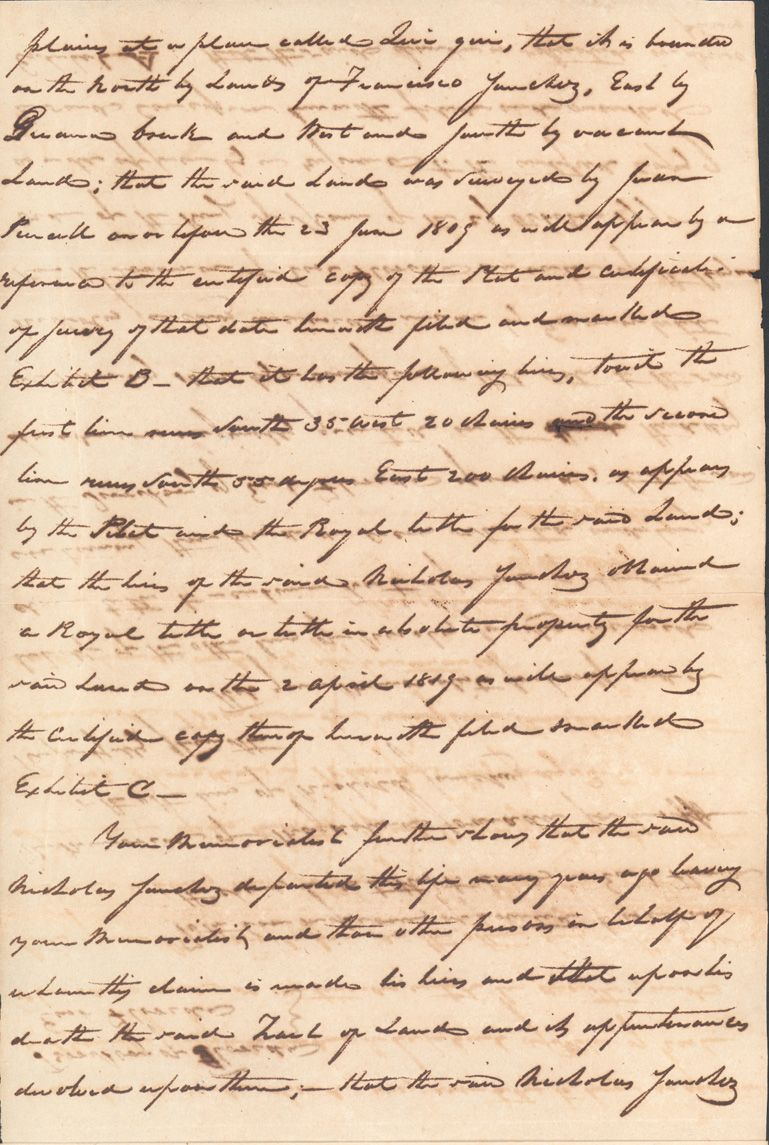 plains at a place called Qui qui, that it is bounded
on the North by Lands of Francisco Sanchez, East by
Guana creek and West and South by vacant
Land; that the said Land was surveyed by Juan
Purcell on or before the 23 June 1809 as will appear by a
reference to the certified copy of the Plat and certificate
of survey of that date herewith filed and marked
Exhibit B— that it has the following lines, towit the
first line runs South 35 West 20 chains and the second
line runs South 55 degrees East 200 chains, as appears
by the Plat and the Royal title for the said Land;
that the heirs of the said Nicholas Sanchez obtained
a Royal title or title in absolute property for the
said Land on the 2 April 1819 as will appear by
the certified copy thereof herewith filed & marked
Exhibit C—
Your Memorialist further shows that the said
Nicholas Sanchez departed this life many years ago leaving
your Memorialist, and those other persons in behalf of
whom this claim is made his heirs and that upon his
death the said Tract of Land and its appurtenances
devolved upon them;— that the said Nicholas Sanchez